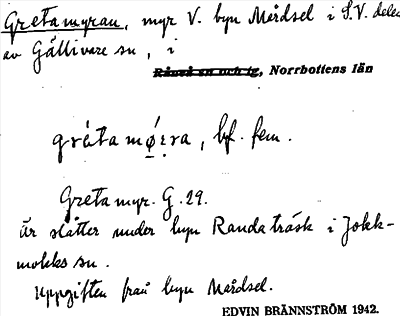 Gretamyran, myr V. byn Mårdsel i S.V. delen
av Gällivare sn, i
Råneå sn och tg, Norrbottens län
grèta mǿ̣ra, bf. fem.
Greta myr. G. 29.
Är slåtter under byn Randaträsk i Jokk-
mokks sn.
Uppgiften från byn Mårdsel.
EDVIN BRÄNNSTRÖM 1942.